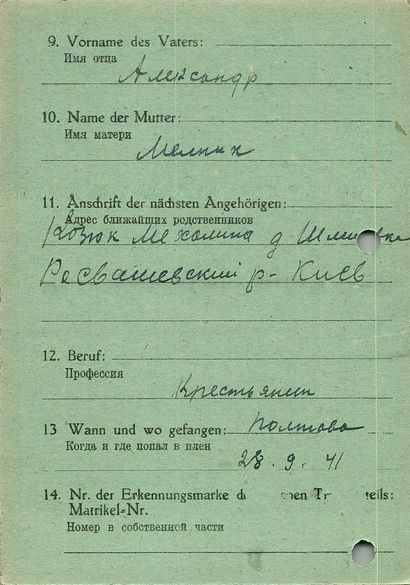 9. Vorname des Vaters:
Имя отца
Александр
10. Name der Mutter:
Имя матери
Мельник
11. Anschrift der nächsten Angehörigen:
Адрес ближайших родственников
Козюк Мехалина д
Росвашевский р- Киев
12. Beruf:
Профессия
Крестьянин
13 Wann und wo gefangen: Полтава
Когда и где попал в плен
28. 9. 41
14. Nr. der Erkennungsmarke
Matrikel-Nr.
Номер в собственной части